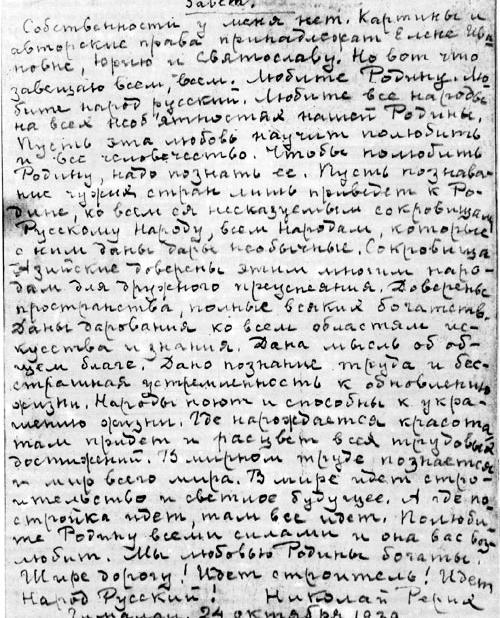 Завет.
Собственности у меня нет. Картины и
авторские права принадлежат Елене Ива-
новне, Юрию и Святославу. Но вот что
завещаю всем, всем. Любите Родину. Лю-
бите народ русский. Любите все народы
на всех необъятностях нашей Родины.
Пусть эта любовь научит полюбить
и все человечество. Чтобы полюбить
Родину, надо познать ее. Пусть познава-
ние чужих стран лишь приведет к Ро-
дине, ко всем ея несказуемым сокровищам.
Русскому народу, всем народам, которые
с ним даны дары необычные. Сокровища
азийские доверены этим многим наро-
дам для дружного преуспеяния. Доверены
пространства, полные всяких богатств.
Даны дарования ко всем областям ис-
кусства и знания. Дана мысль об об-
щем благе. Дано познание труда и бес-
страшная устремленность к обновлению
жизни. Народы поют и способны к укра-
шению жизни. Где нарождается красота,
там придет и расцвет всея трудовых
достижений. В мирном труде познается
и мир всего мира. В мире идет стро-
ительство и светлое будущее. А где по-
стройка идет, там все идет. Полюби-
те Родину всеми силами и она вас воз-
любит. Мы любовью Родины богаты.
Шире дорогу! Идет строитель! Идет
Народ Русский! Николай Рерих
24 октября 1939